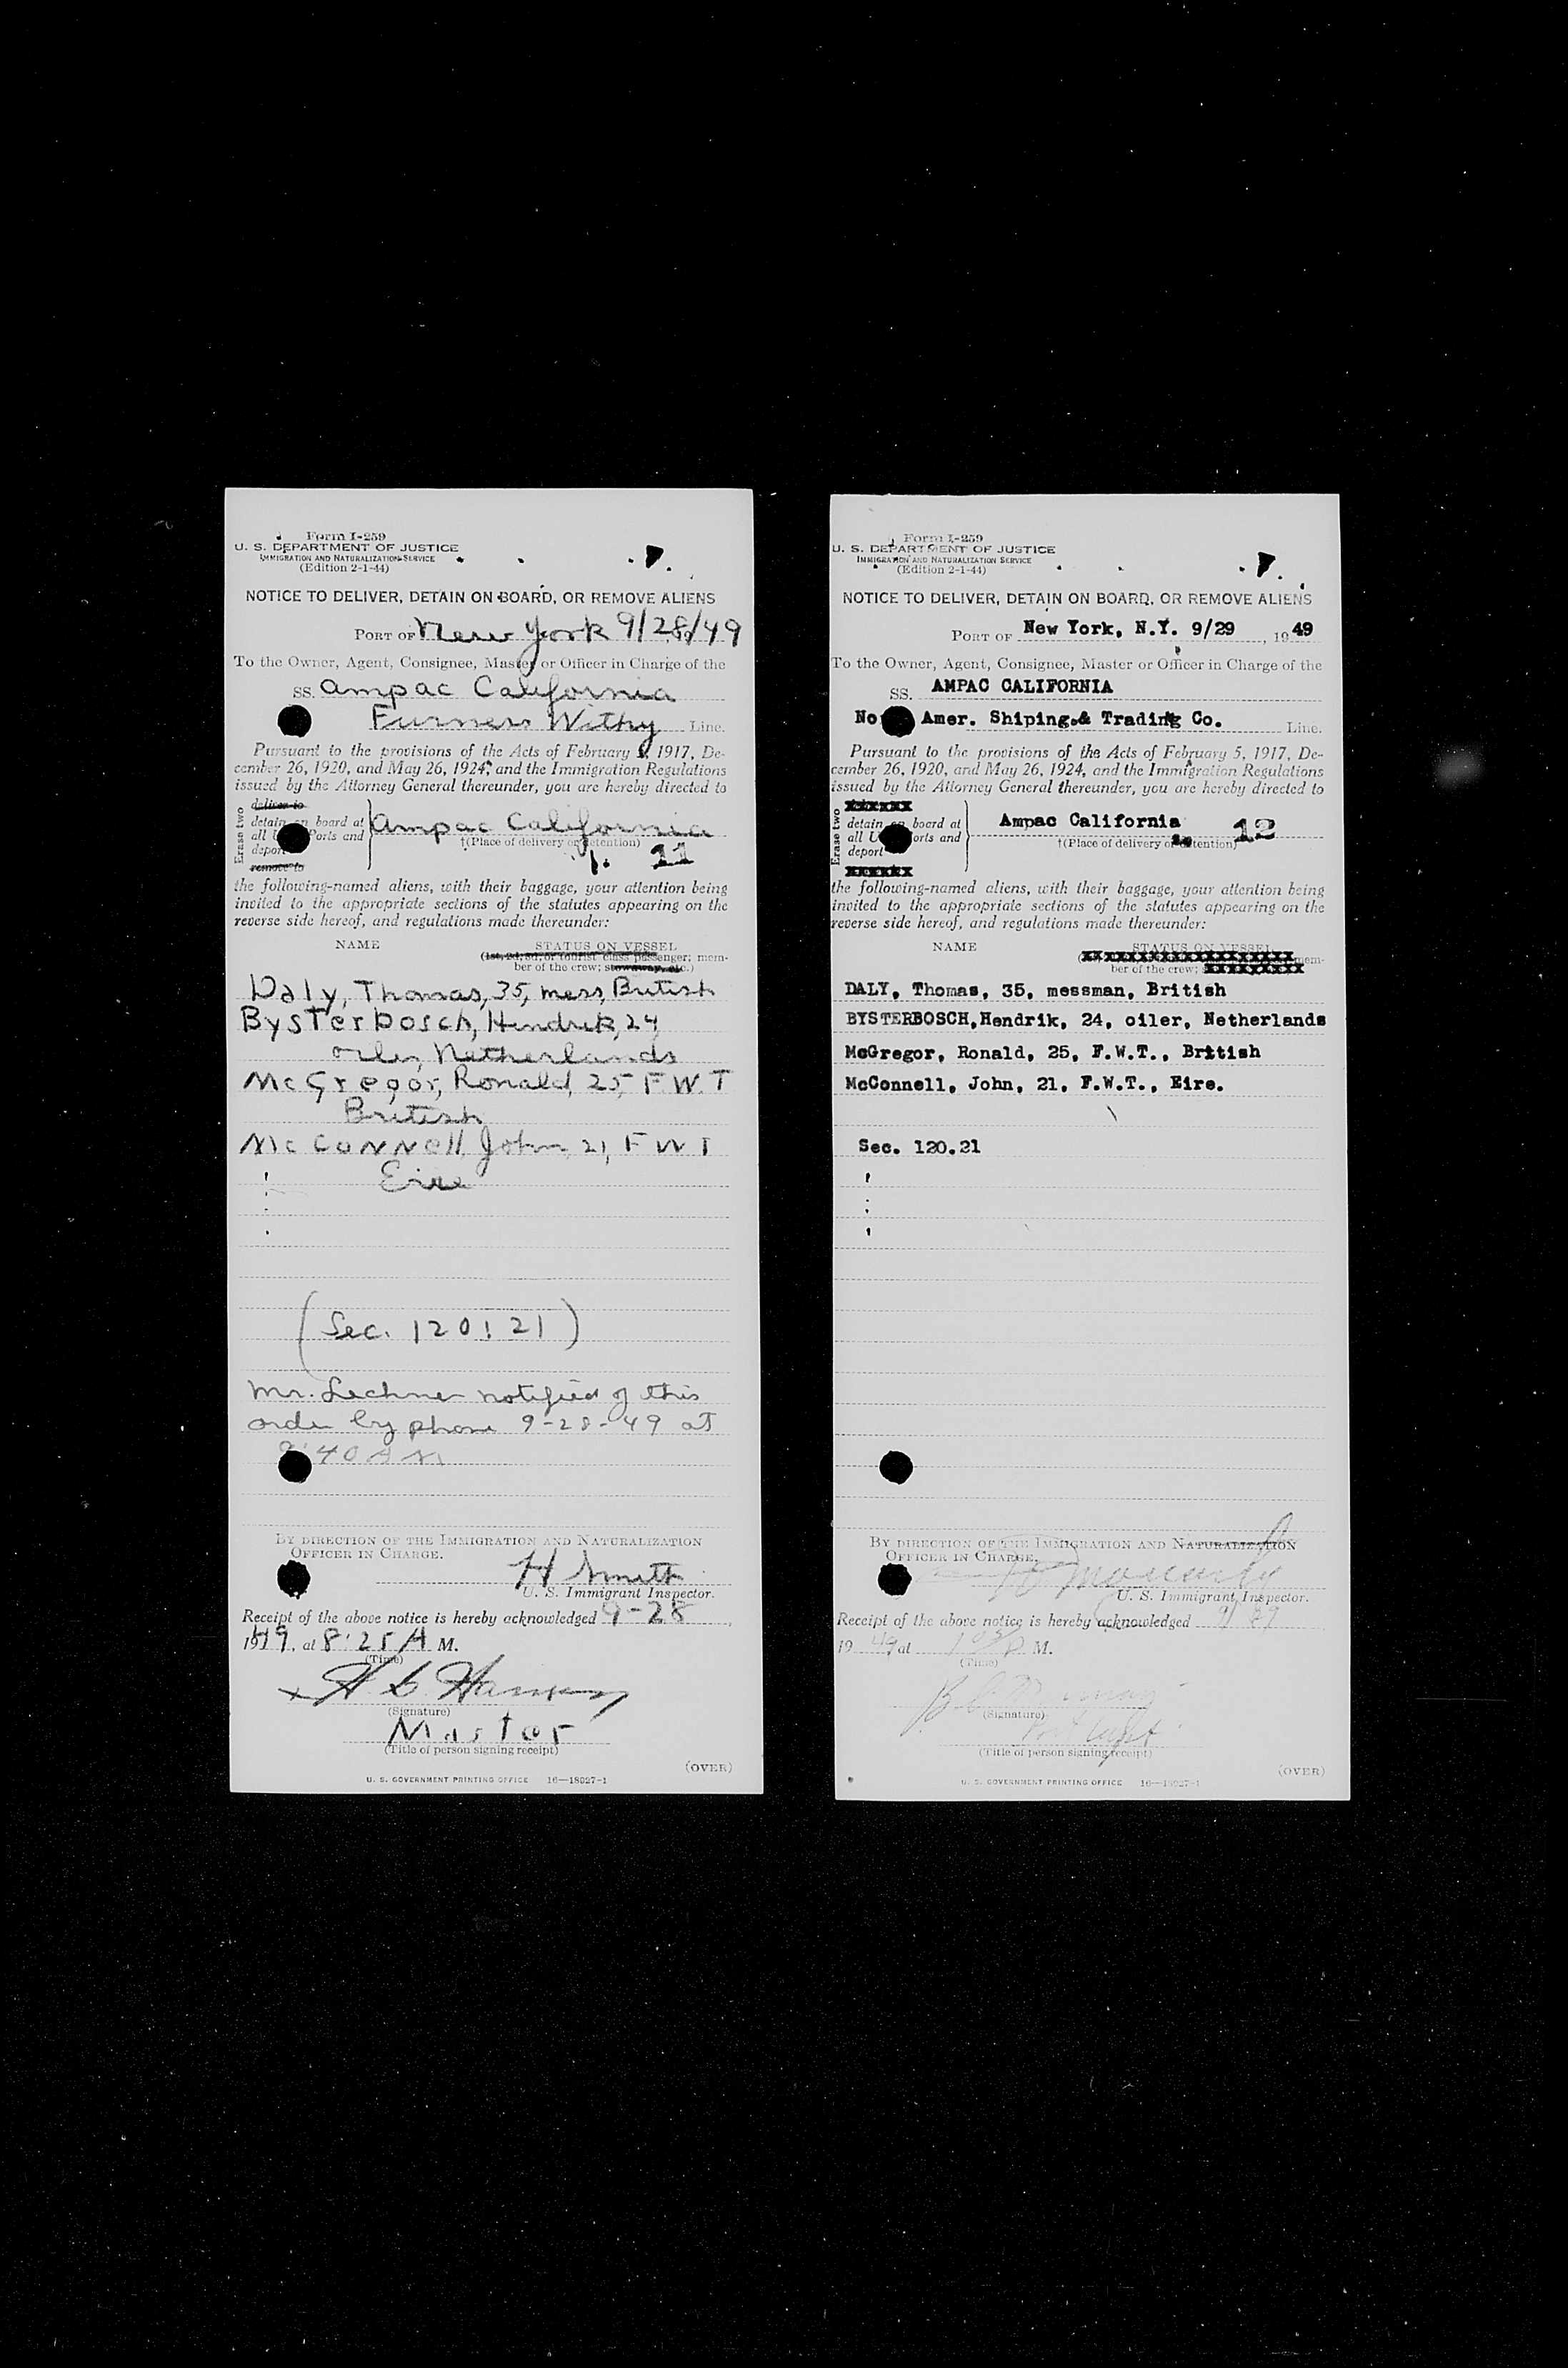 Form I-259
U. S. DEPARTMENT OF JUSTICE
IMMIGRATION AND NATURALIZATION SERVICE
(Edition 2-1-44)
NOTICE TO DELIVER, DETAIN ON BOARD, OR REMOVE ALIENS
PORT OF New York 9/28/49
To the Owner, Agent, Consignee, Master or Officer in Charge of the
SS. Ampac California
Furness Withy Line.
Pursuant to the provisions of the Acts of February 5, 1917, De-
cember 26, 1920, and May 26, 1924, and the Immigration Regulations
issued by the Attorney General thereunder, you are hereby directed to
Erase two
deliver to
detain on board at
all U Ports and
deport
remove to
Ampac California
†(Place of delivery or detention)
11
the following-named aliens, with their baggage, your attention being
invited to the appropriate sections of the statutes appearing on the
reverse side hereof, and regulations made thereunder:
NAME STATUS ON VESSEL
(1st, 2d, 3d, or tourist class passenger; mem-
ber of the crew; stowaway, etc.)
Daly, Thomas, 35, mess, British
Bysterbosch, Hendrik, 24
oiler, Netherlands
McGregor, Ronald, 25, F.W.T
British
McConnell, John, 21, F W T
Eire
(Sec. 120.21)
Mr. Lechner notified of this
order by phone 9-28-49 at
40 AM
BY DIRECTION OF THE IMMIGRATION AND NATURALIZATION
OFFICER IN CHARGE.
H Smith
U. S. Immigrant Inspector.
Receipt of the above notice is hereby acknowledged 9-28
1949, at 8:25 A M.
(Time)
(Signature)
Master
(Title of person signing receipt)
(OVER)
U. S. GOVERNMENT PRINTING OFFICE 16—18027-1
Form I-259
U. S. DEPARTMENT OF JUSTICE
IMMIGRATION AND NATURALIZATION SERVICE
(Edition 2-1-44)
NOTICE TO DELIVER, DETAIN ON BOARD, OR REMOVE ALIENS
PORT OF New York, N.Y. 9/29, 1949
To the Owner, Agent, Consignee, Master or Officer in Charge of the
SS. AMPAC CALIFORNIA
No Amer. Shiping.& Trading Co. Line.
Pursuant to the provisions of the Acts of February 5, 1917, De-
cember 26, 1920, and May 26, 1924, and the Immigration Regulations
issued by the Attorney General thereunder, you are hereby directed to
Erase two
xxxxxx
detain on board at
all U orts and
deport
xxxxxx
Ampac California
†(Place of delivery or detention)
12
the following-named aliens, with their baggage, your attention being
invited to the appropriate sections of the statutes appearing on the
reverse side hereof, and regulations made thereunder:
NAME STATUS ON VESSEL
mem-
ber of the crew;
DALY, Thomas, 35, messman, British
BYSTERBOSCH,Hendrik, 24, oiler, Netherlands
McGregor, Ronald, 25, F.W.T., British
McConnell, John, 21, F.W.T., Eire.
Sec. 120.21
BY DIRECTION OF THE IMMIGRATION AND NATURALIZATION
OFFICER IN CHARGE.
U. S. Immigrant Inspector.
Receipt of the above notice is hereby acknowledged 9/29
1949 at M.
(Time)
(Signature)
(Title of person signing receipt)
(OVER)
U. S. GOVERNMENT PRINTING OFFICE 16—18027-1